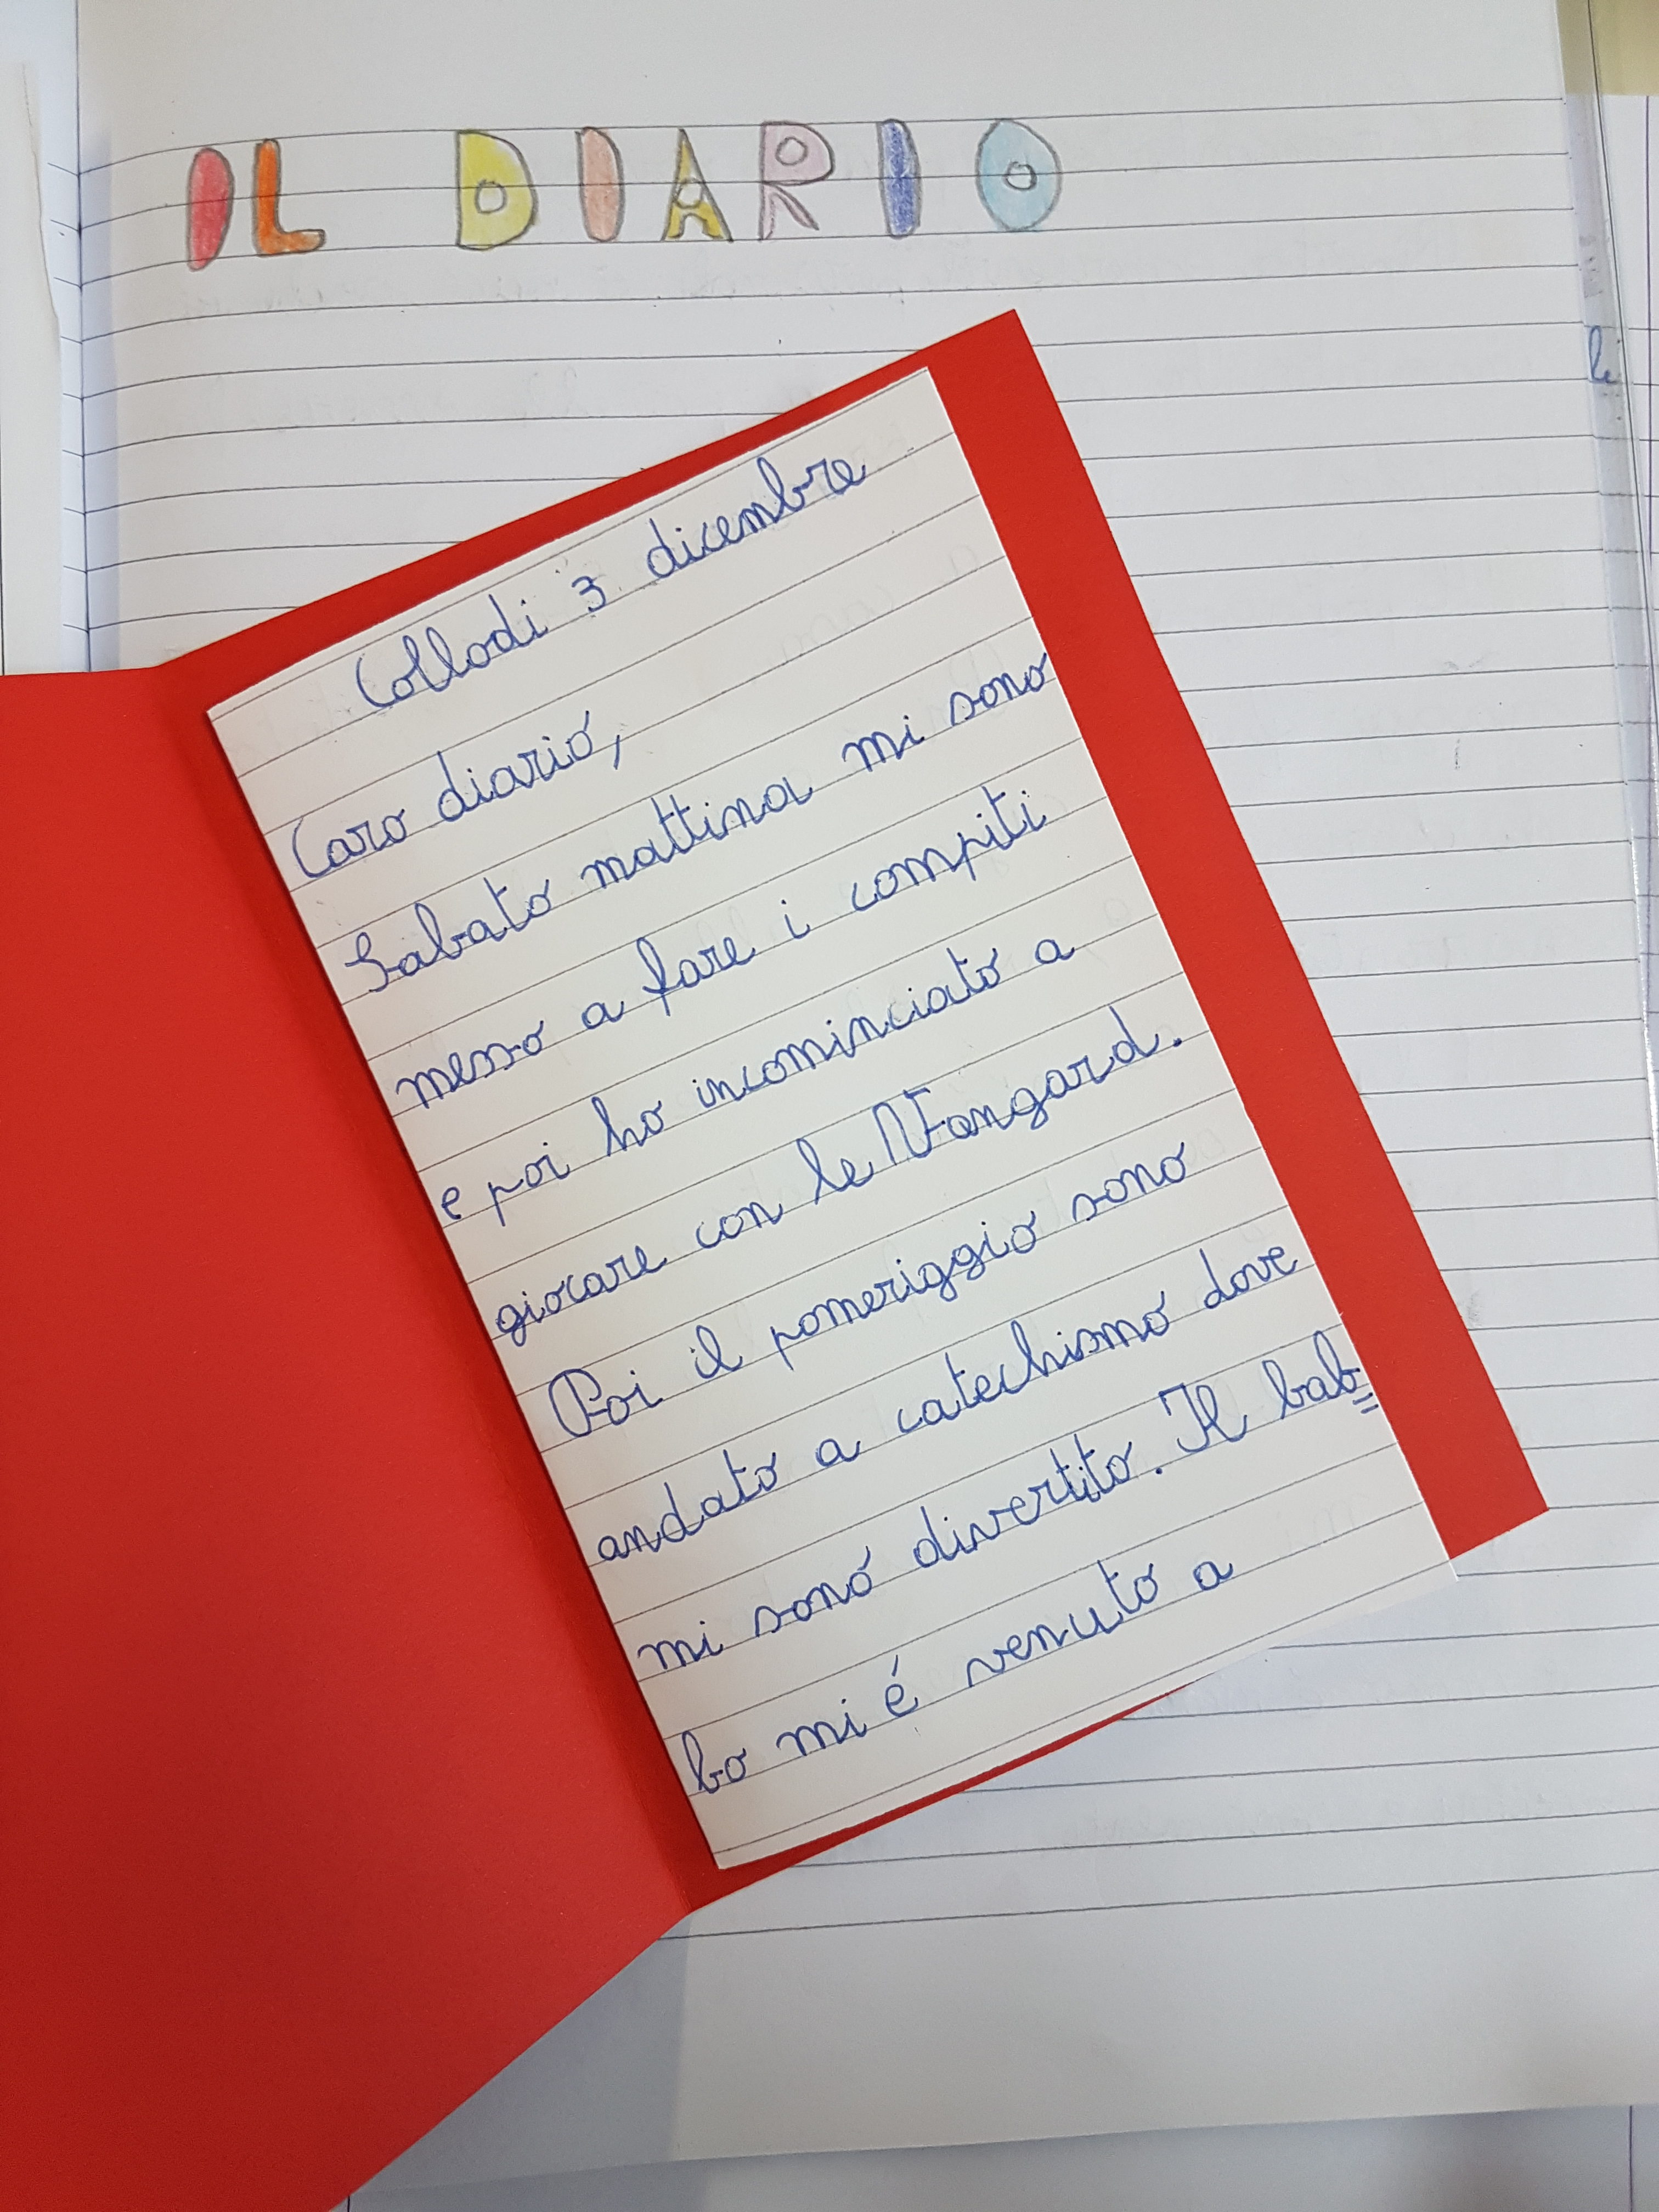 IL DIARIO
Collodi 3 dicembre
Caro diario,
Sabato mattina mi sono
messo a fare i compiti
e poi ho incominciato a
giocare con le
Poi il pomeriggio sono
andato a catechismo dove
mi sono divertito. Il bab=
bo mi é venuto a